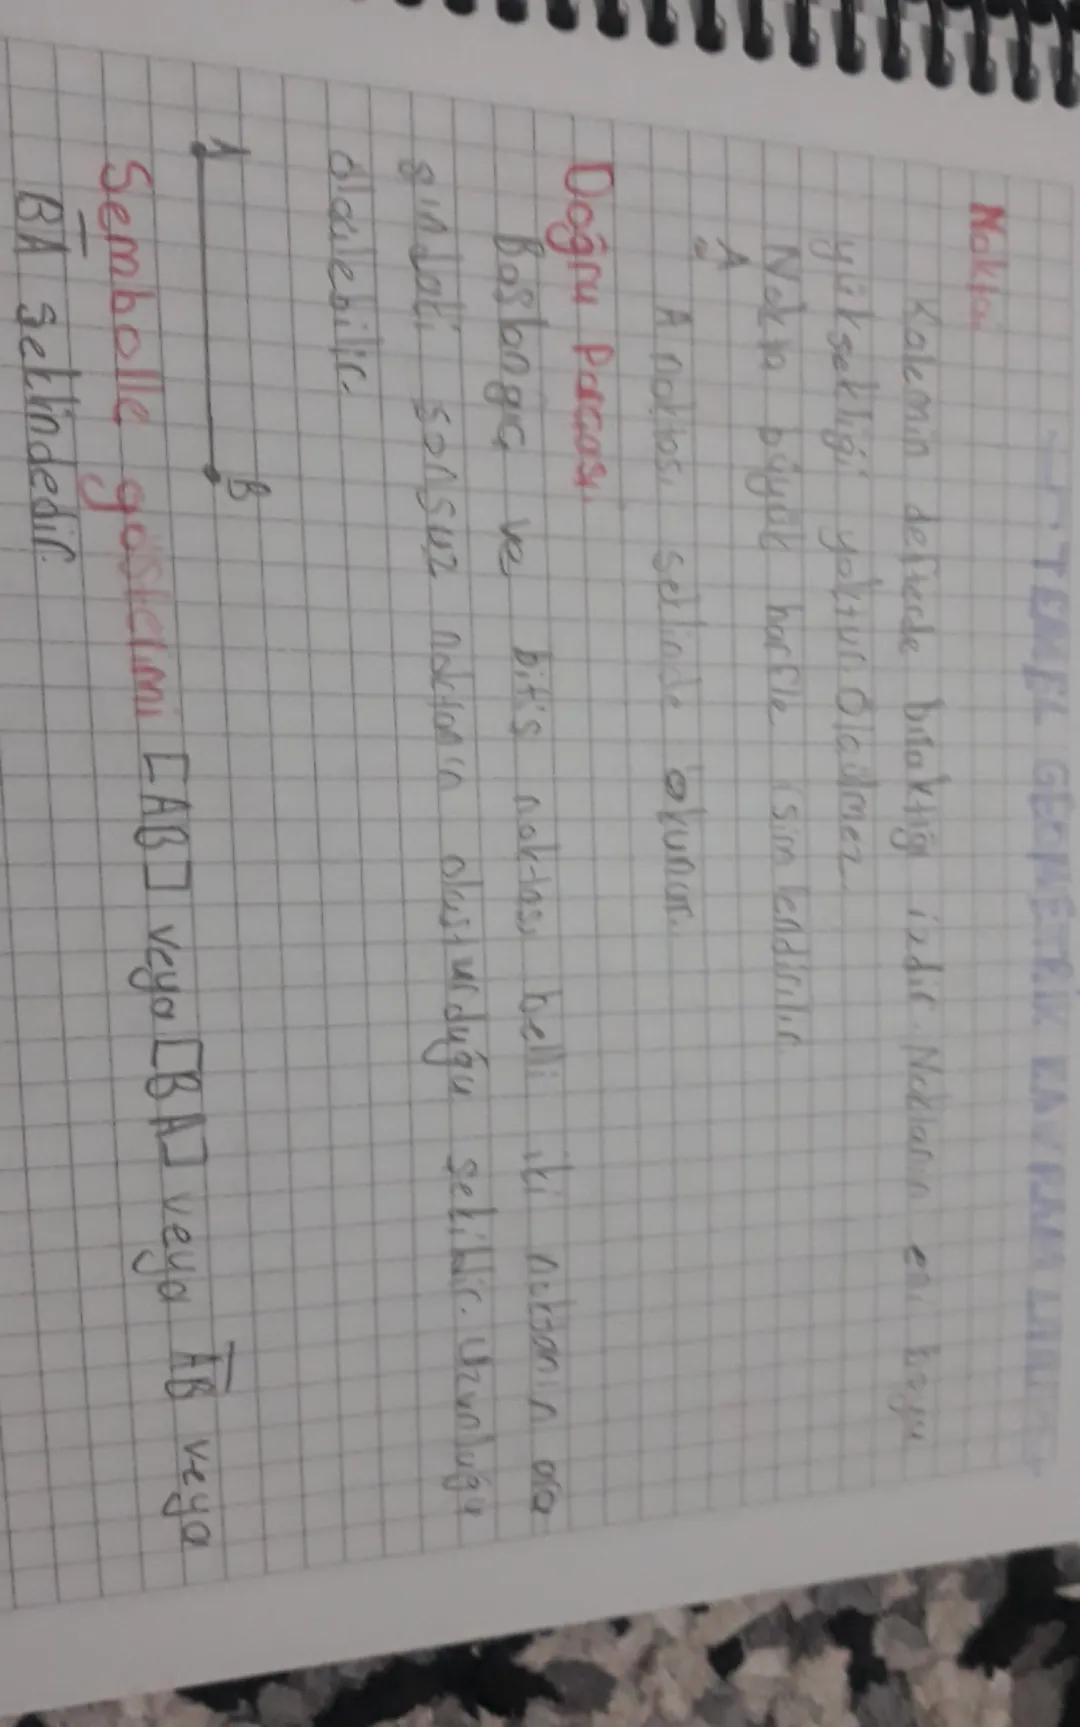 TEMEL GEOMETRİK KAVRAMLAR
Nokta
Kalemin defterde bıraktığı izdir. Noktanın eni boyu
yüksekliği yoktur. Ölçülmez
Nokta büyük harfle isimlendirilir
A
A noktası şeklinde okunur.
Doğru Parçası
Başlangıç ve bitiş noktası belli iki noktanın ara
sındaki sonsuz noktanın oluşturduğu şekildir. Uzunluğu
ölçülebilir.
A B
Sembolle gösterimi [AB] veya [BA] veya A̅B̅ veya
B̅A̅ şeklindedir.